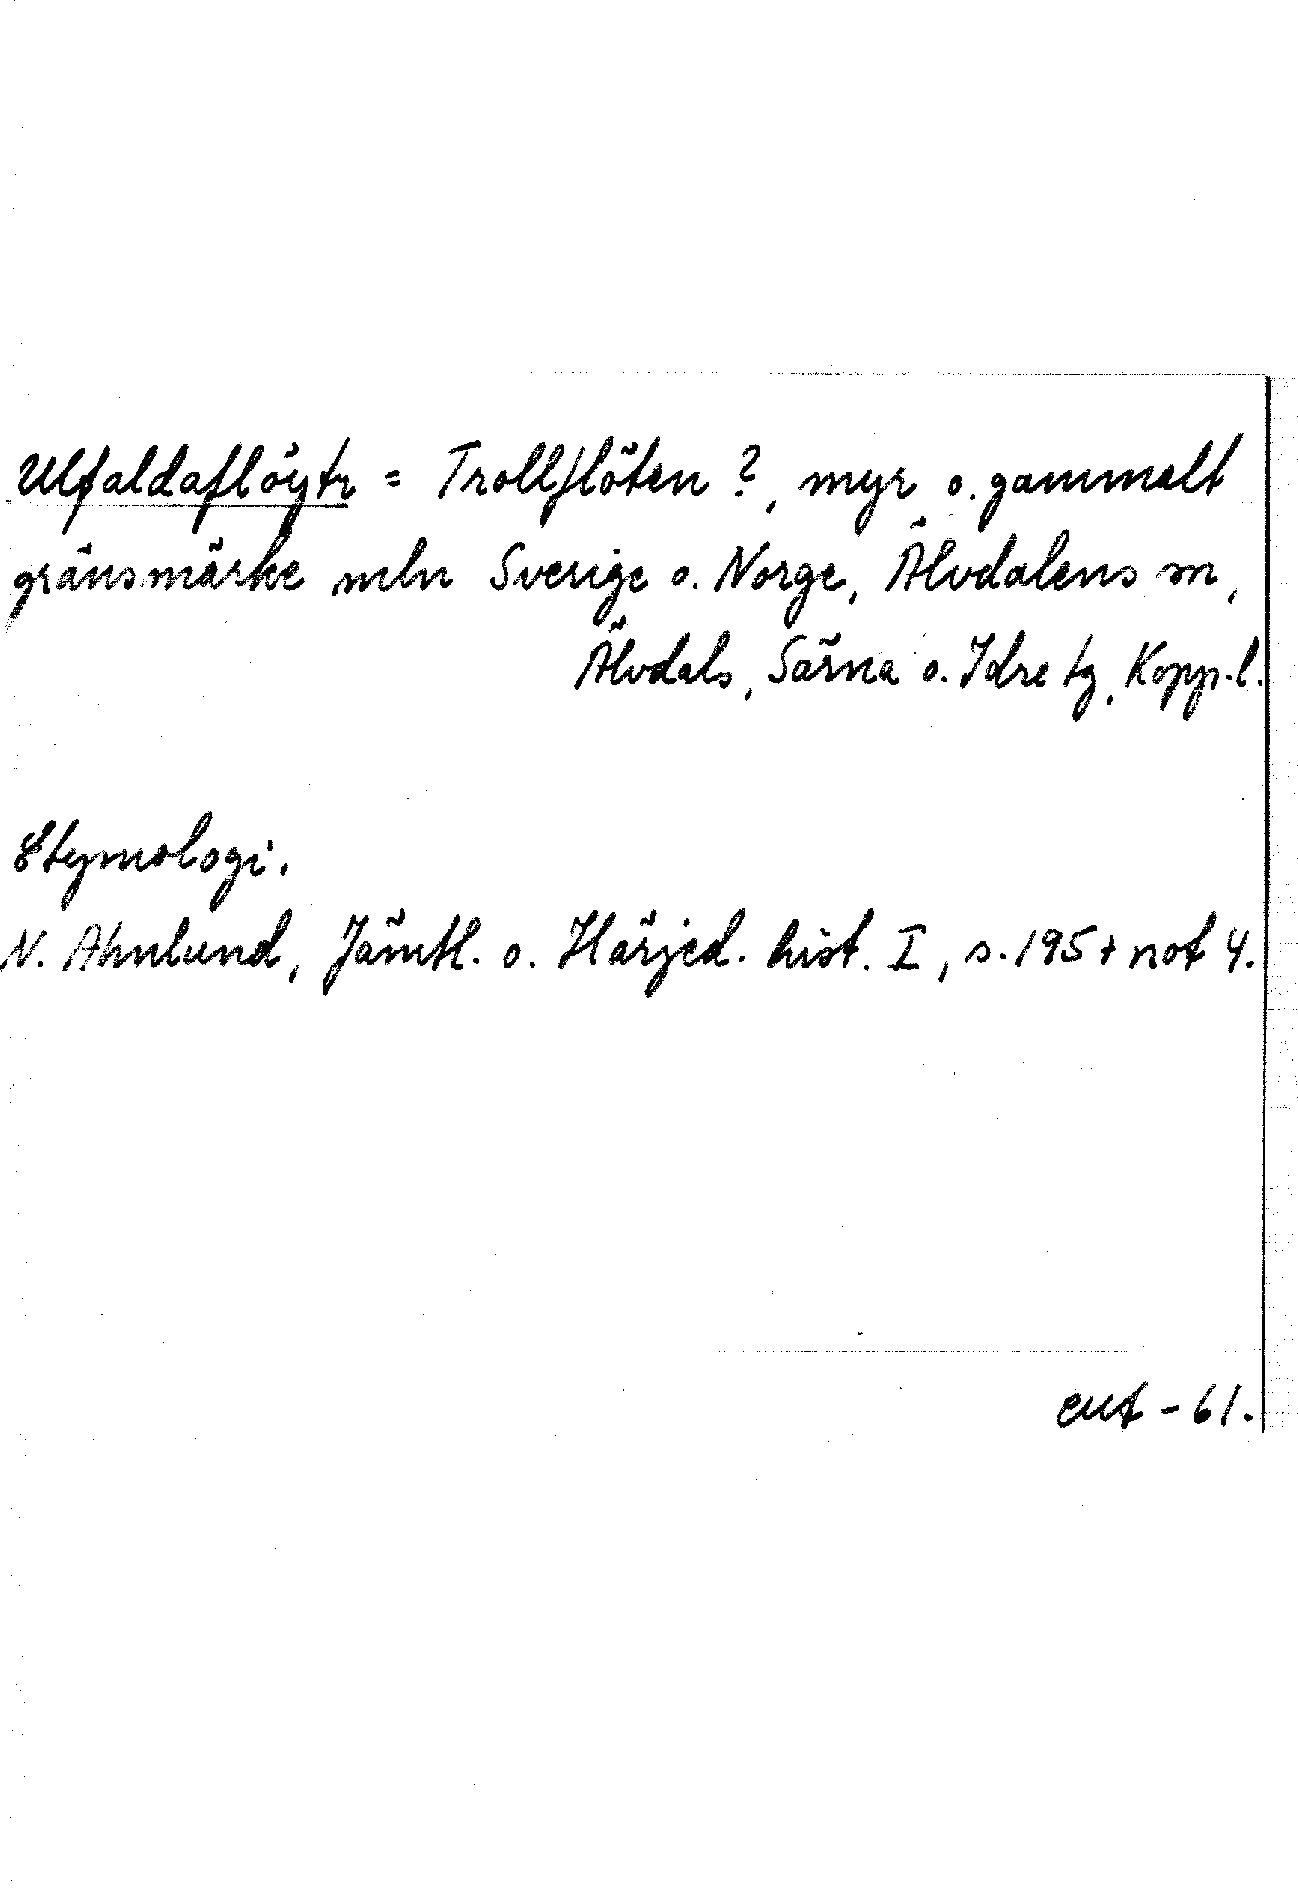 Ulfaldaflöytr = Trollflöten ?, myr o. gammalt
gränsmärke mln Sverige o. Norge, Älvdalens sn,
Älvdals, Särna o. Idre tg, Kopp. l.
Etymologi.
N. Ahnlund, Jämtl. o. Härjed. hist. I, s. 195 + not 4.
- 61.